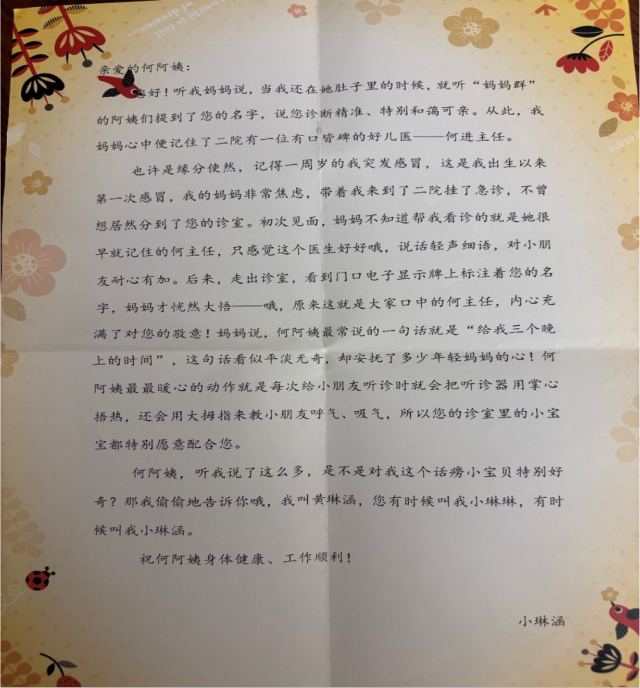 world is full
of dreams
亲爱的何阿姨：
您好！听我妈妈说，当我还在她肚子里的时候，就听“妈妈群”
的阿姨们提到了您的名字，说您诊断精准、特别和蔼可亲。从此，我
妈妈心中便记住了二院有一位有口皆碑的好儿医——何进主任。
也许是缘分使然，记得一周岁的我突发感冒，这是我出生以来
第一次感冒，我的妈妈非常焦虑，带着我来到了二院挂了急诊，不曾
想居然分到了您的诊室。初次见面，妈妈不知道帮我看诊的就是她很
早就记住的何主任，只感觉这个医生好好哦，说话轻声细语，对小朋
友耐心有加。后来，走出诊室，看到门口电子显示牌上标注着您的名
字，妈妈才恍然大悟——哦，原来这就是大家口中的何主任，内心充
满了对您的敬意！妈妈说，何阿姨最常说的一句话就是“给我三个晚
上的时间”，这句话看似平淡无奇，却安抚了多少年轻妈妈的心！何
阿姨最最暖心的动作就是每次给小朋友听诊时就会把听诊器用掌心
捂热，还会用大拇指来教小朋友呼气、吸气，所以您的诊室里的小宝
宝都特别愿意配合您。
何阿姨，听我说了这么多，是不是对我这个话痨小宝贝特别好
奇？那我偷偷地告诉你哦，我叫黄琳涵，您有时候叫我小琳琳，有时
候叫我小琳涵。
祝何阿姨身体健康、工作顺利！
小琳涵